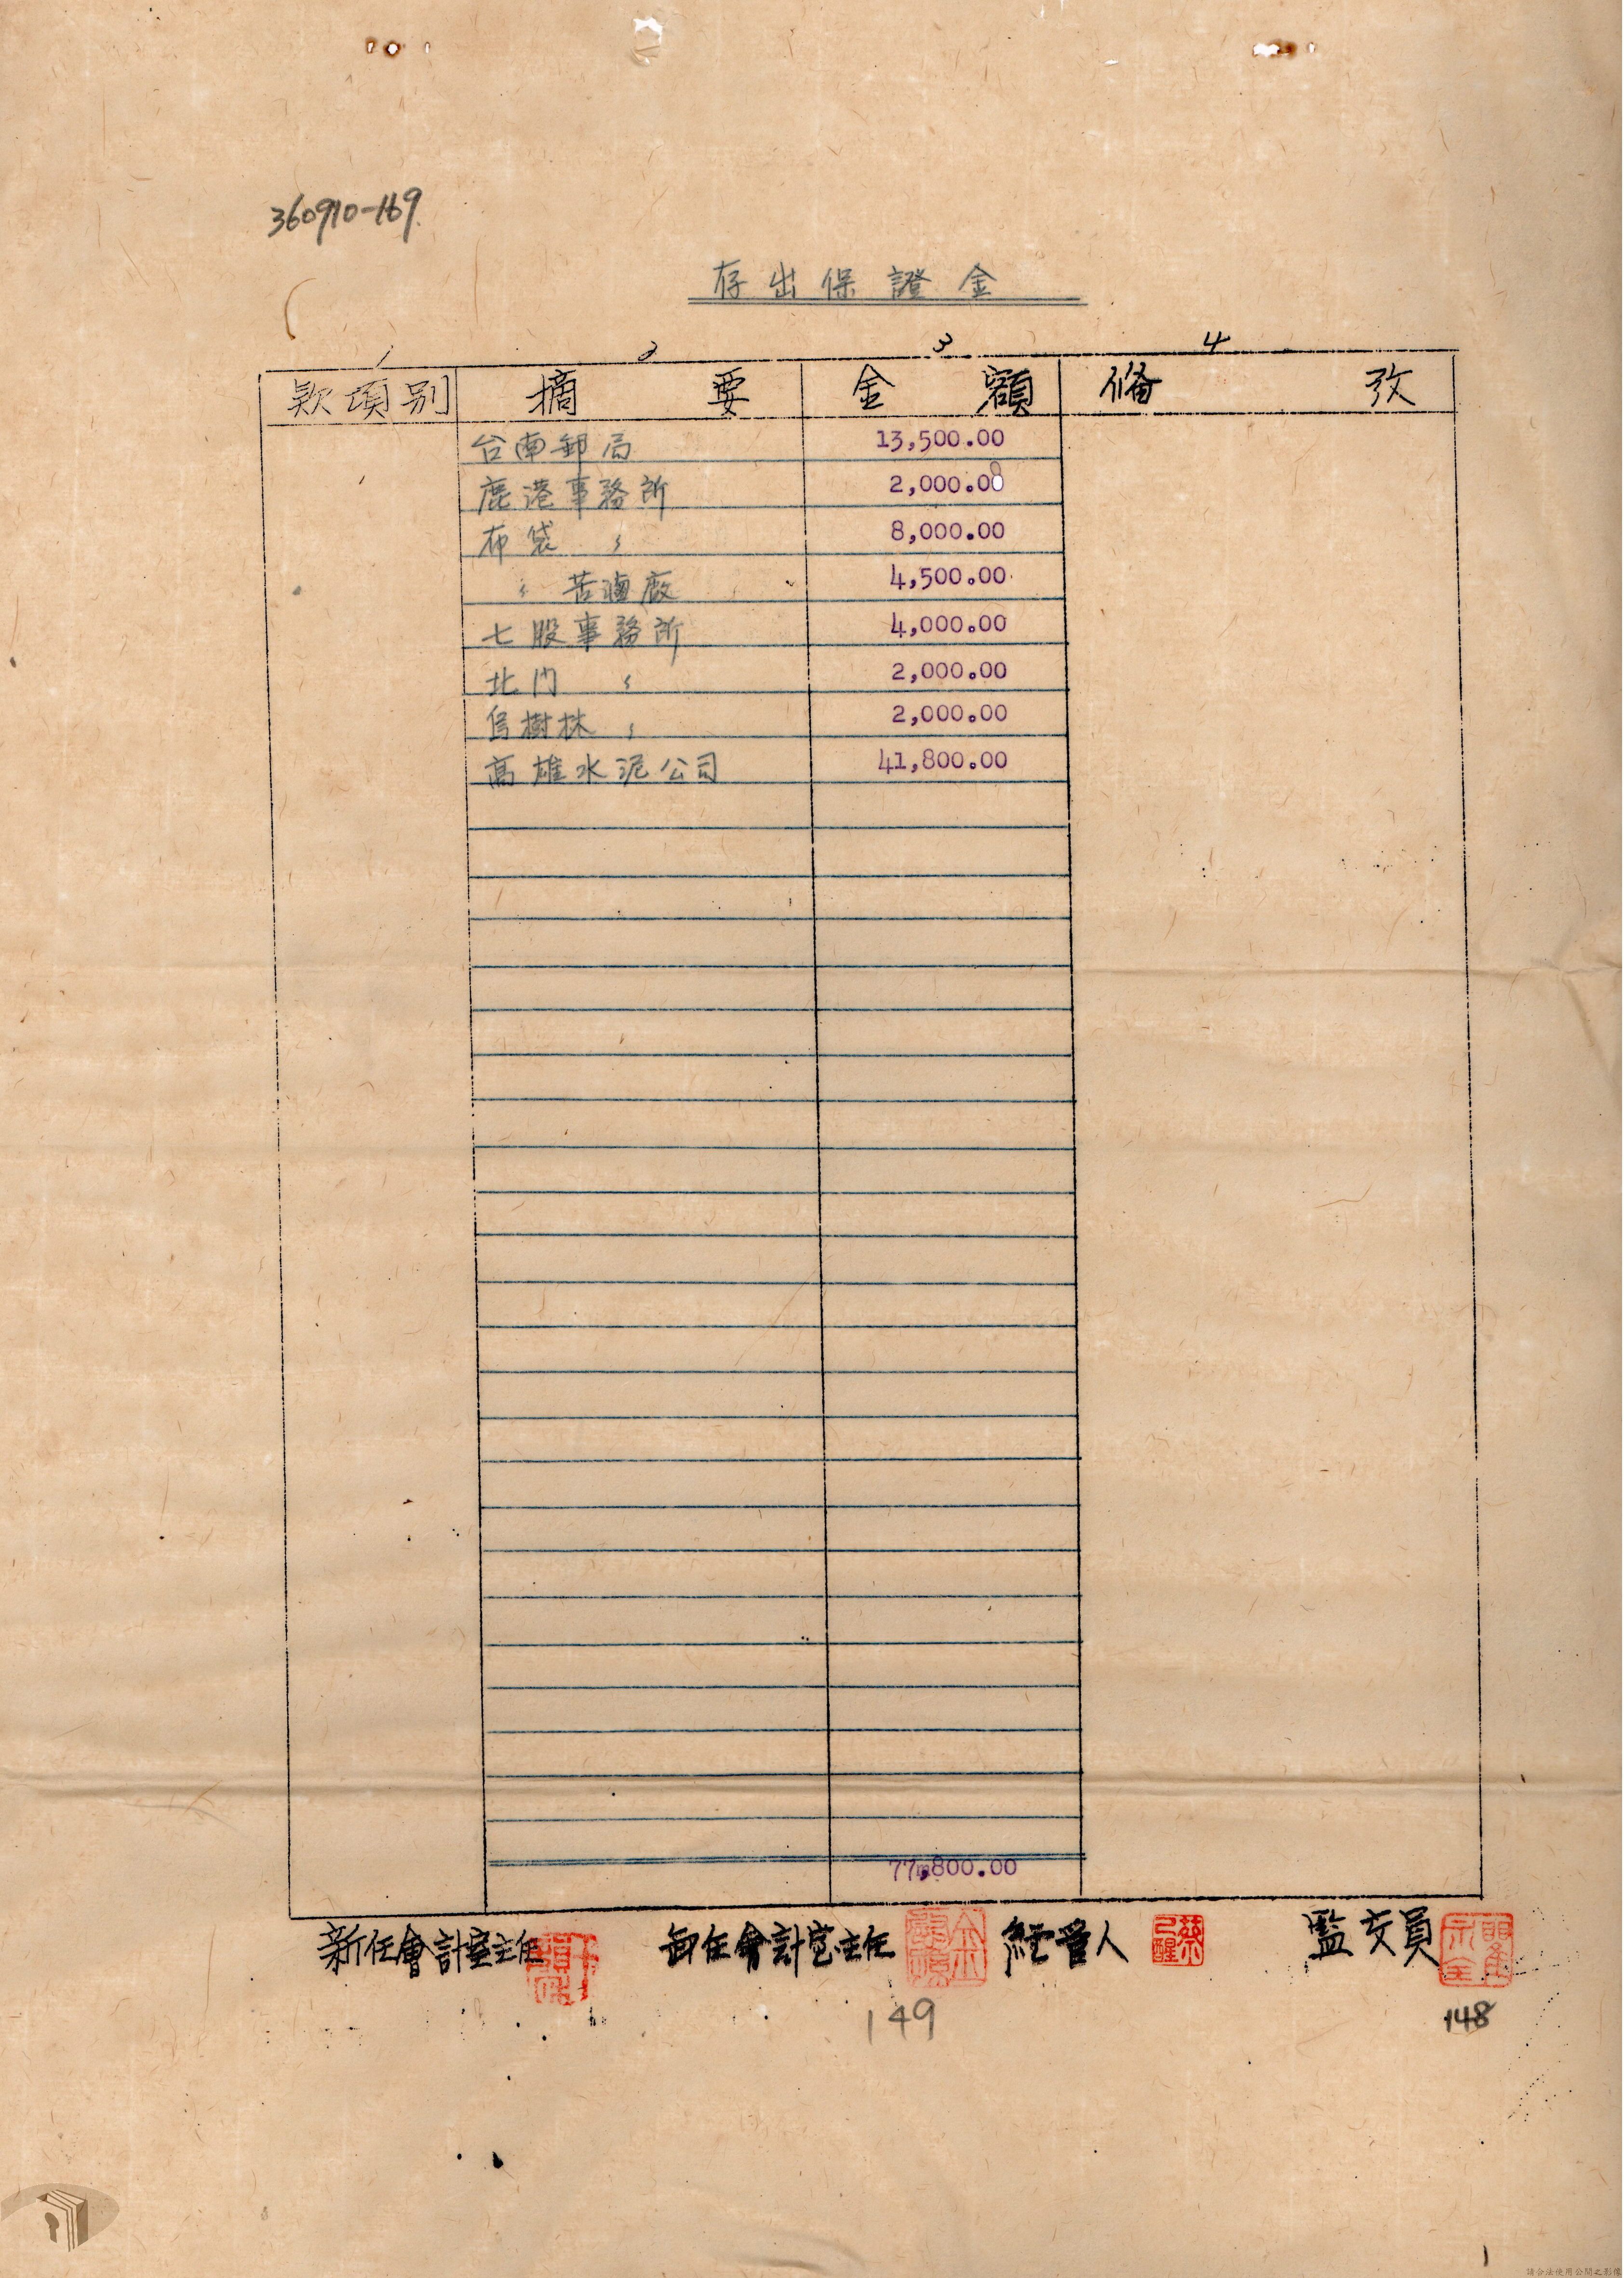 360910-169
存出保證金
1 2 3 4
款項別 摘要 金額 備攷
台南郵局 13,500.00
鹿港事務所 2,000.00
布袋 〃 8,000.00
〃 苦滷廠 4,500.00
七股事務所 4,000.00
北門 〃 2,000.00
烏樹林 〃 2,000.00
高雄水泥公司 41,800.00
77,800.00
新任會計室主任 卸任會計室主任 經管人 監交員
149 148
1
請合法使用公開之影像